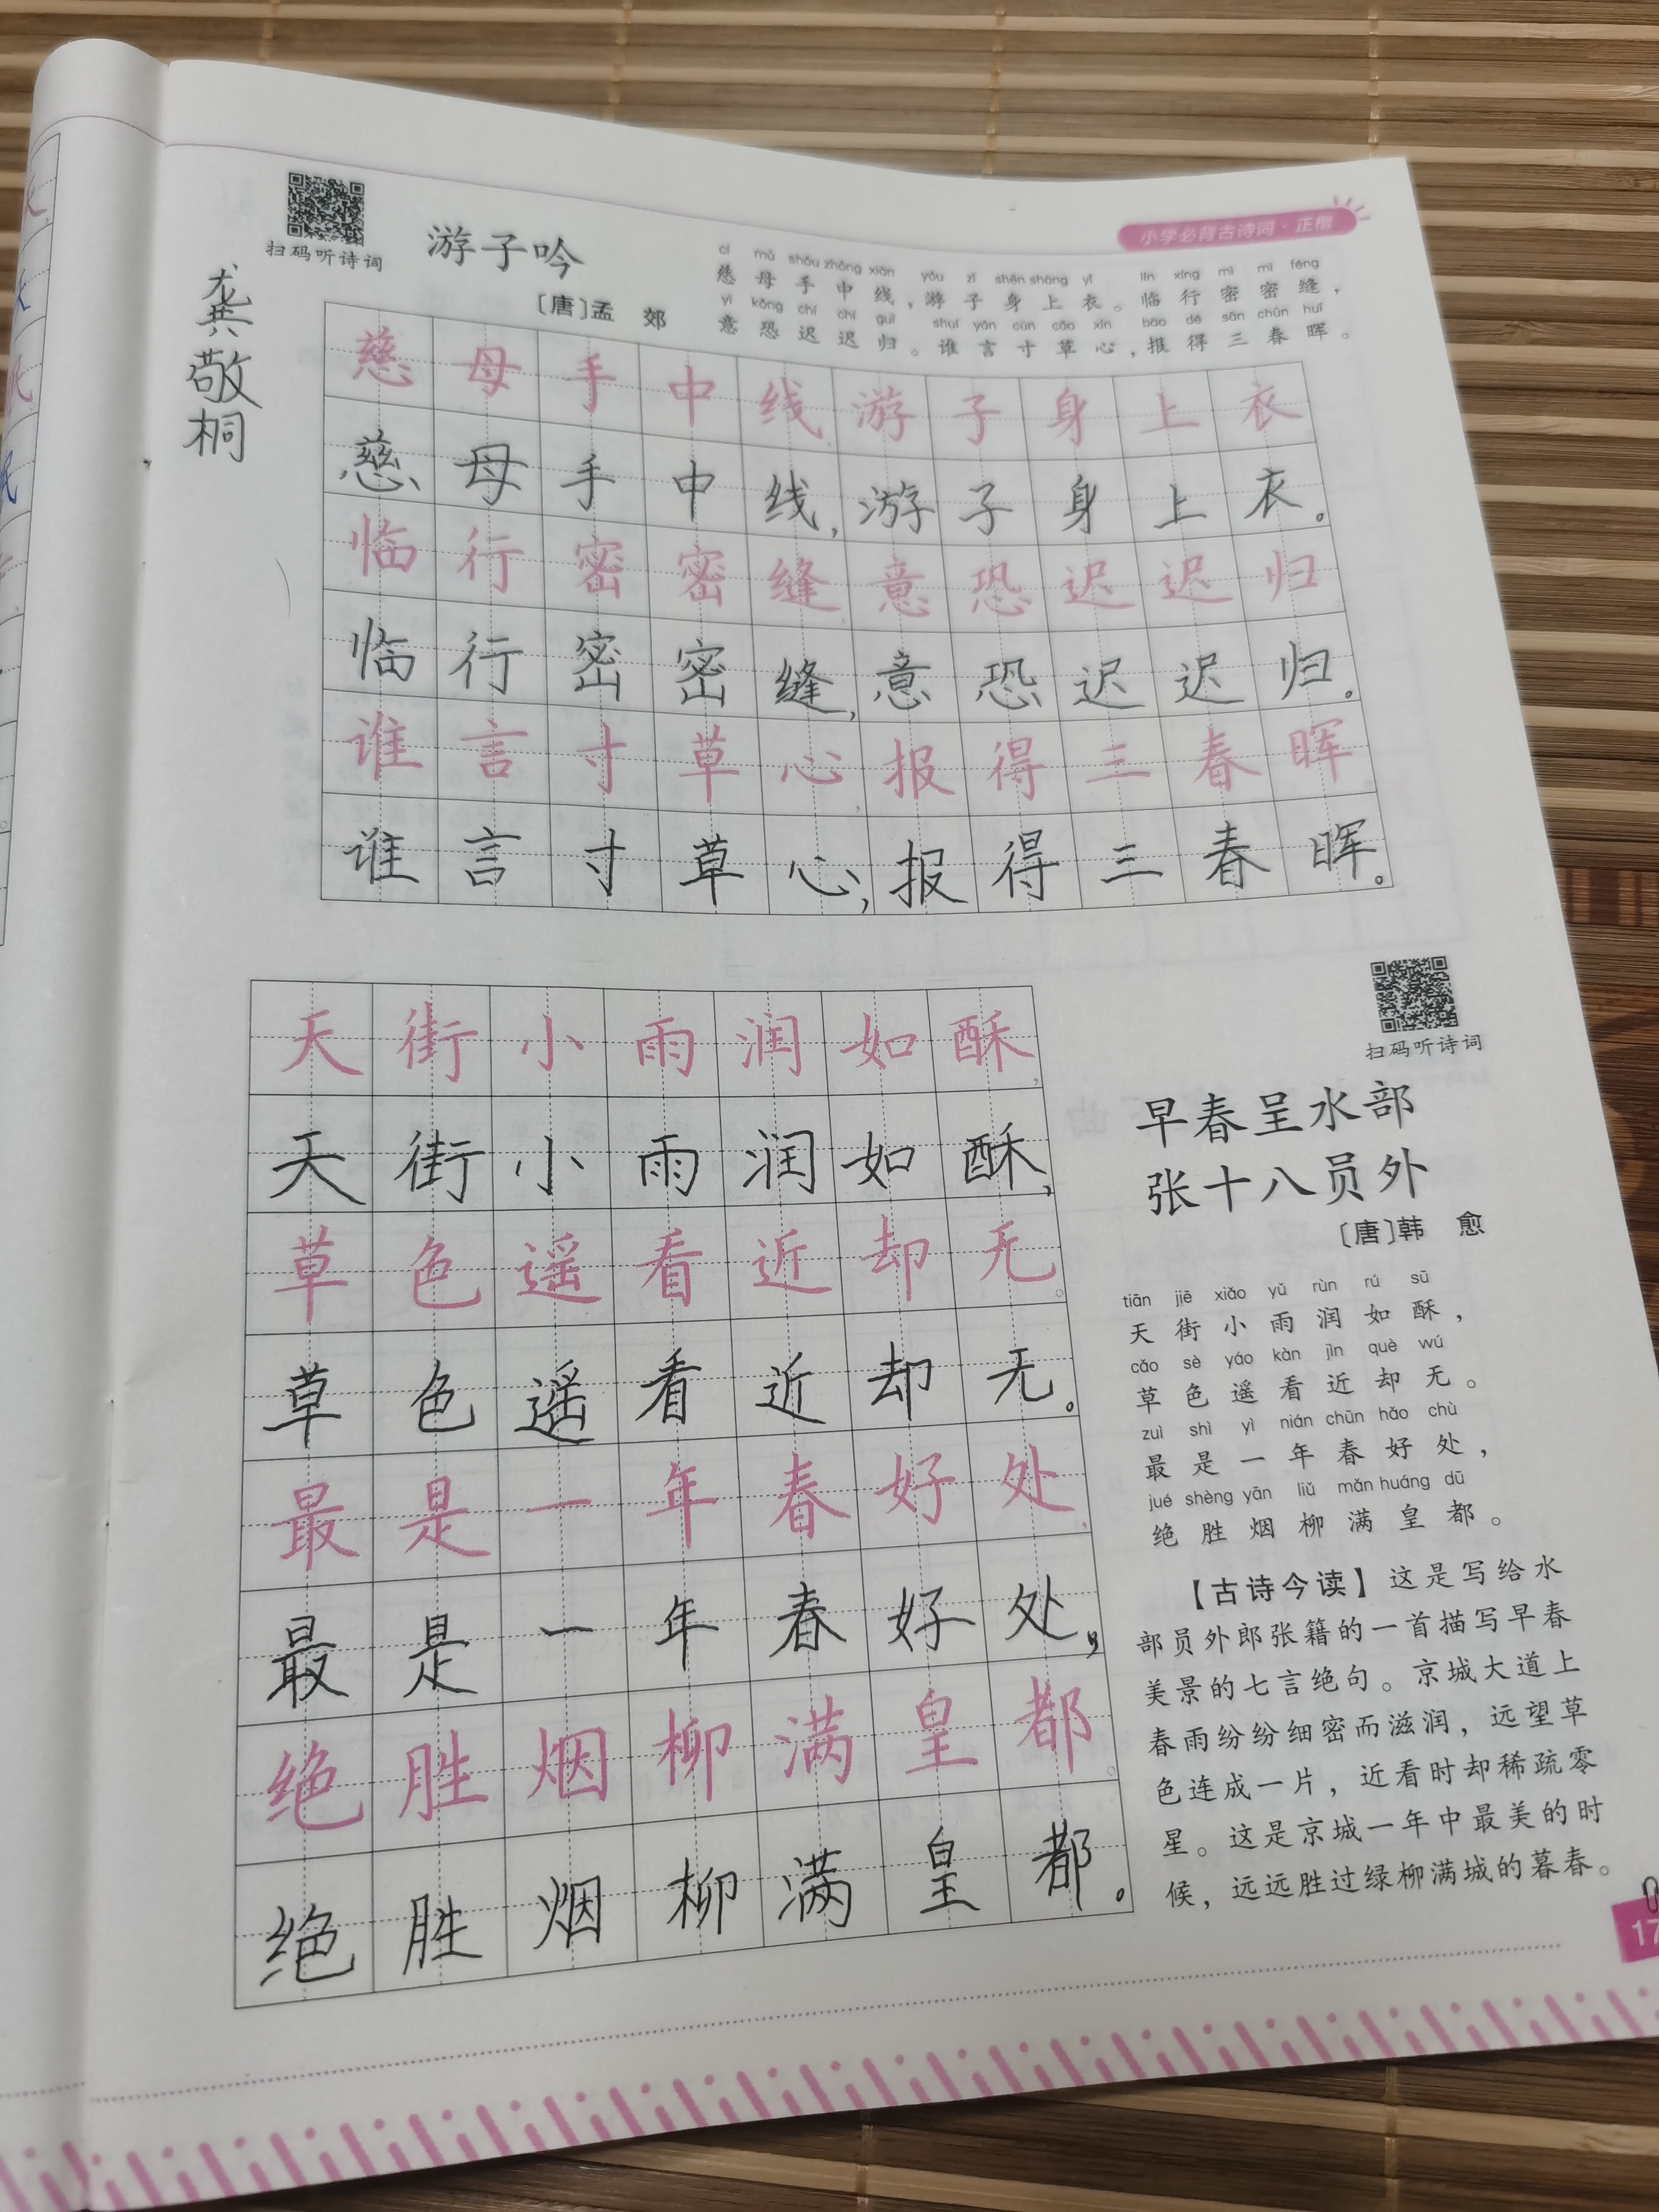 小学必背古诗词·正楷
扫码听诗词
游子吟
〔唐〕孟 郊
龚敬桐
cí mǔ shǒu zhōng xiàn yóu zǐ shēn shàng yī lín xíng mì mì féng
慈母手中线，游子身上衣。临行密密缝，
yì kǒng chí chí guī shuí yán cùn cǎo xīn bào dé sān chūn huī
意恐迟迟归。谁言寸草心，报得三春晖。
慈母手中线，游子身上衣
慈母手中线，游子身上衣。
临行密密缝，意恐迟迟归
临行密密缝，意恐迟迟归。
谁言寸草心，报得三春晖。
谁言寸草心，报得三春晖。
天街小雨润如酥，
天街小雨润如酥，
草色遥看近却无。
草色遥看近却无。
最是一年春好处，
最是一年春好处，
绝胜烟柳满皇都。
绝胜烟柳满皇都。
扫码听诗词
早春呈水部
张十八员外
〔唐〕韩 愈
tiān jiē xiǎo yǔ rùn rú sū
天街小雨润如酥，
cǎo sè yáo kàn jìn què wú
草色遥看近却无。
zuì shì yì nián chūn hǎo chù
最是一年春好处，
jué shèng yān liǔ mǎn huáng dū
绝胜烟柳满皇都。
【古诗今读】这是写给水
部员外郎张籍的一首描写早春
美景的七言绝句。京城大道上
春雨纷纷细密而滋润，远望草
色连成一片，近看时却稀疏零
星。这是京城一年中最美的时
候，远远胜过绿柳满城的暮春。
17